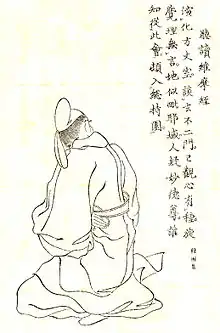 聽讀維摩經
演化方丈室談玄不二門已觀心有種旋
覺理無言地似毗耶城人疑妙德尊誰
知從此會頓入總持園